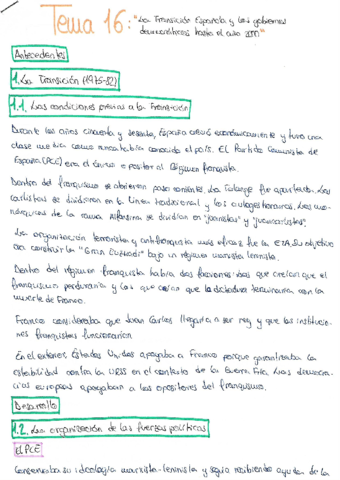 Tema 16: "La Transición Española y los gobiernos
democráticos hasta el año 2000"
Antecedentes
1. La Transición (1975-82)
1.1. Las condiciones previas a la Transición
Durante los años cincuenta y sesenta, España creció económicamente y tuvo una
clase media como nunca había conocido el país. El Partido Comunista de
España (PCE) era el único opositor al Régimen franquista.
Dentro del franquismo se abrieron paso corrientes. La Falange fue apartada. Los
carlistas se dividieron en la línea tradicional y los autogestionarios. Los mo-
nárquicos de la rama Alfonsina se dividían en "juanistas" y "juancarlistas".
La organización terrorista y antifranquista más eficaz fue la ETA. Su objetivo
era construir la "Gran Euskadi" bajo un régimen marxista leninista.
Dentro del régimen franquista había dos previsiones: los que creían que el
franquismo perduraría y los que creían que la dictadura terminaría con la
muerte de Franco.
Franco consideraba que Juan Carlos llegaría a ser rey y que las institucio-
nes franquistas funcionarían
En el exterior, Estados Unidos apoyaba a Franco porque garantizaba la
estabilidad contra la URSS en el contexto de la Guerra Fría. Las democra-
cias europeas apoyaban a los opositores del franquismo.
Desarrollo
1.2. La organización de las fuerzas políticas
El PCE
Conservaba su ideología marxista-leninista y seguía recibiendo ayudas de la